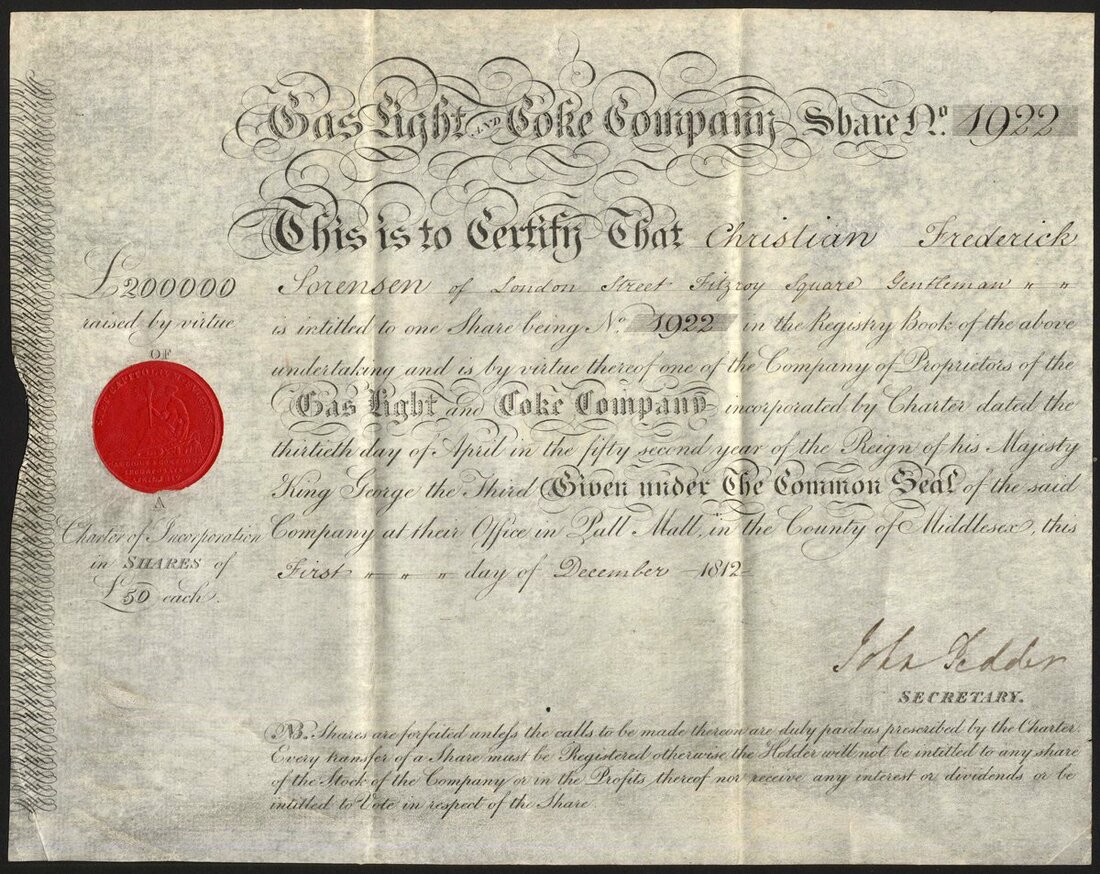 Gas Light AND Coke Company Share No. 1922
This is to Certify That Christian Frederick
£200000
raised by virtue
OF
A
Charter of Incorporation
in SHARES of
£50 each.
Sorensen of London Street Fitzroy Square Gentleman " "
is intitled to one Share being No. 1922 in the Registry Book of the above
undertaking and is by virtue thereof one of the Company of Proprietors of the
Gas Light and Coke Company incorporated by Charter dated the
thirtieth day of April in the fifty second year of the Reign of his Majesty
King George the Third Given under The Common Seal of the said
Company at their Office in Pall Mall, in the County of Middlesex, this
First " " " day of December 1812
John Pedder
SECRETARY.
NB. Shares are forfeited unless the calls to be made thereon are duly paid as prescribed by the Charter.
Every transfer of a Share must be Registered otherwise the Holder will not be intitled to any share
of the Stock of the Company or in the Profits thereof nor receive any interest or dividends or be
intitled to Vote in respect of the Share